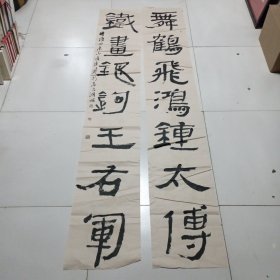 舞鶴飛鴻鍾太傅
鐵畫銀鉤王右軍